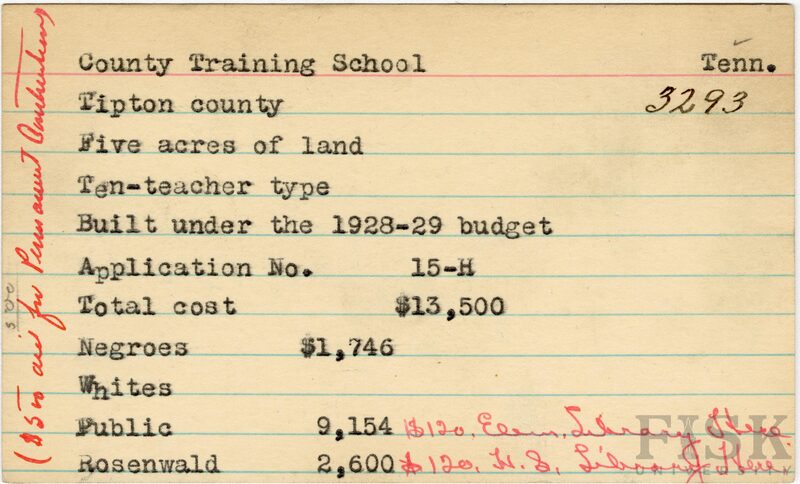 County Training School Tenn.
Tipton county 3293
Five acres of land
Ten-teacher type
Built under the 1928-29 budget
Application No. 15-H
Total cost $13,500
Negroes $1,746
Whites
Public 9,154 $120. Elem. Library Here.
Rosenwald 2,600 $120. H.S. Library Here.
($500 aid for Permanent Construction)
500
FISK
UNIVERSITY